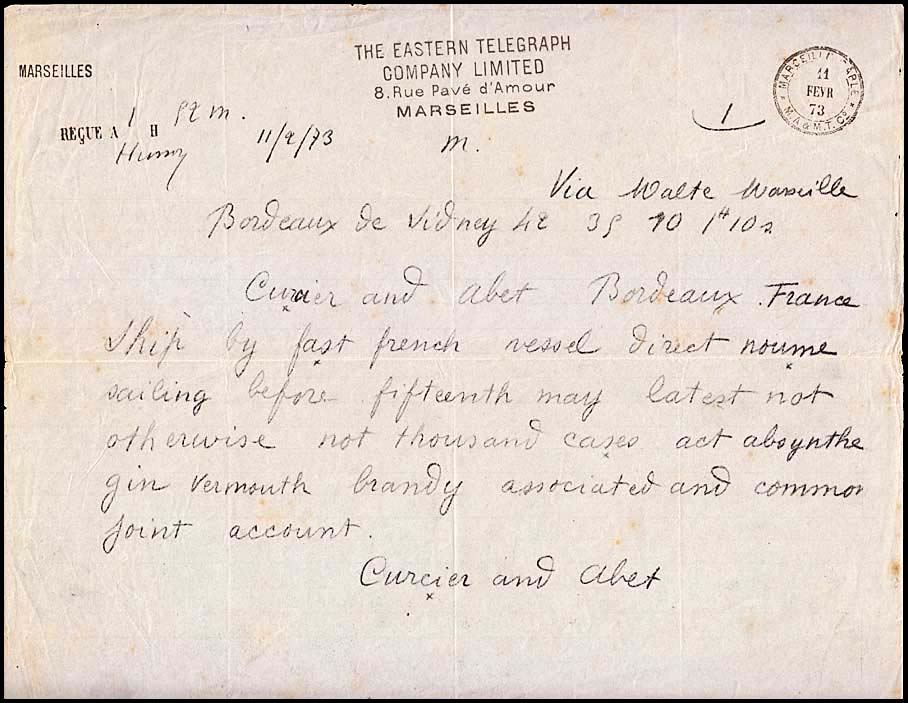 THE EASTERN TELEGRAPH
COMPANY LIMITED
8. Rue Pavé d'Amour
MARSEILLES
MARSEILLES
MARSEILLE
11
FEVR
73
M.A & M.T. Co
1
REÇUE A 1 H 52 m.
11/2/73 m.
Via Malte Marseille
Bordeaux de Sidney 42 39 10
Curcier and Abet Bordeaux France
Ship by fast french vessel direct noume
sailing before fifteenth may latest not
otherwise not thousand cases act absynthe
gin vermouth brandy associated and common
joint account.
Curcier and Abet